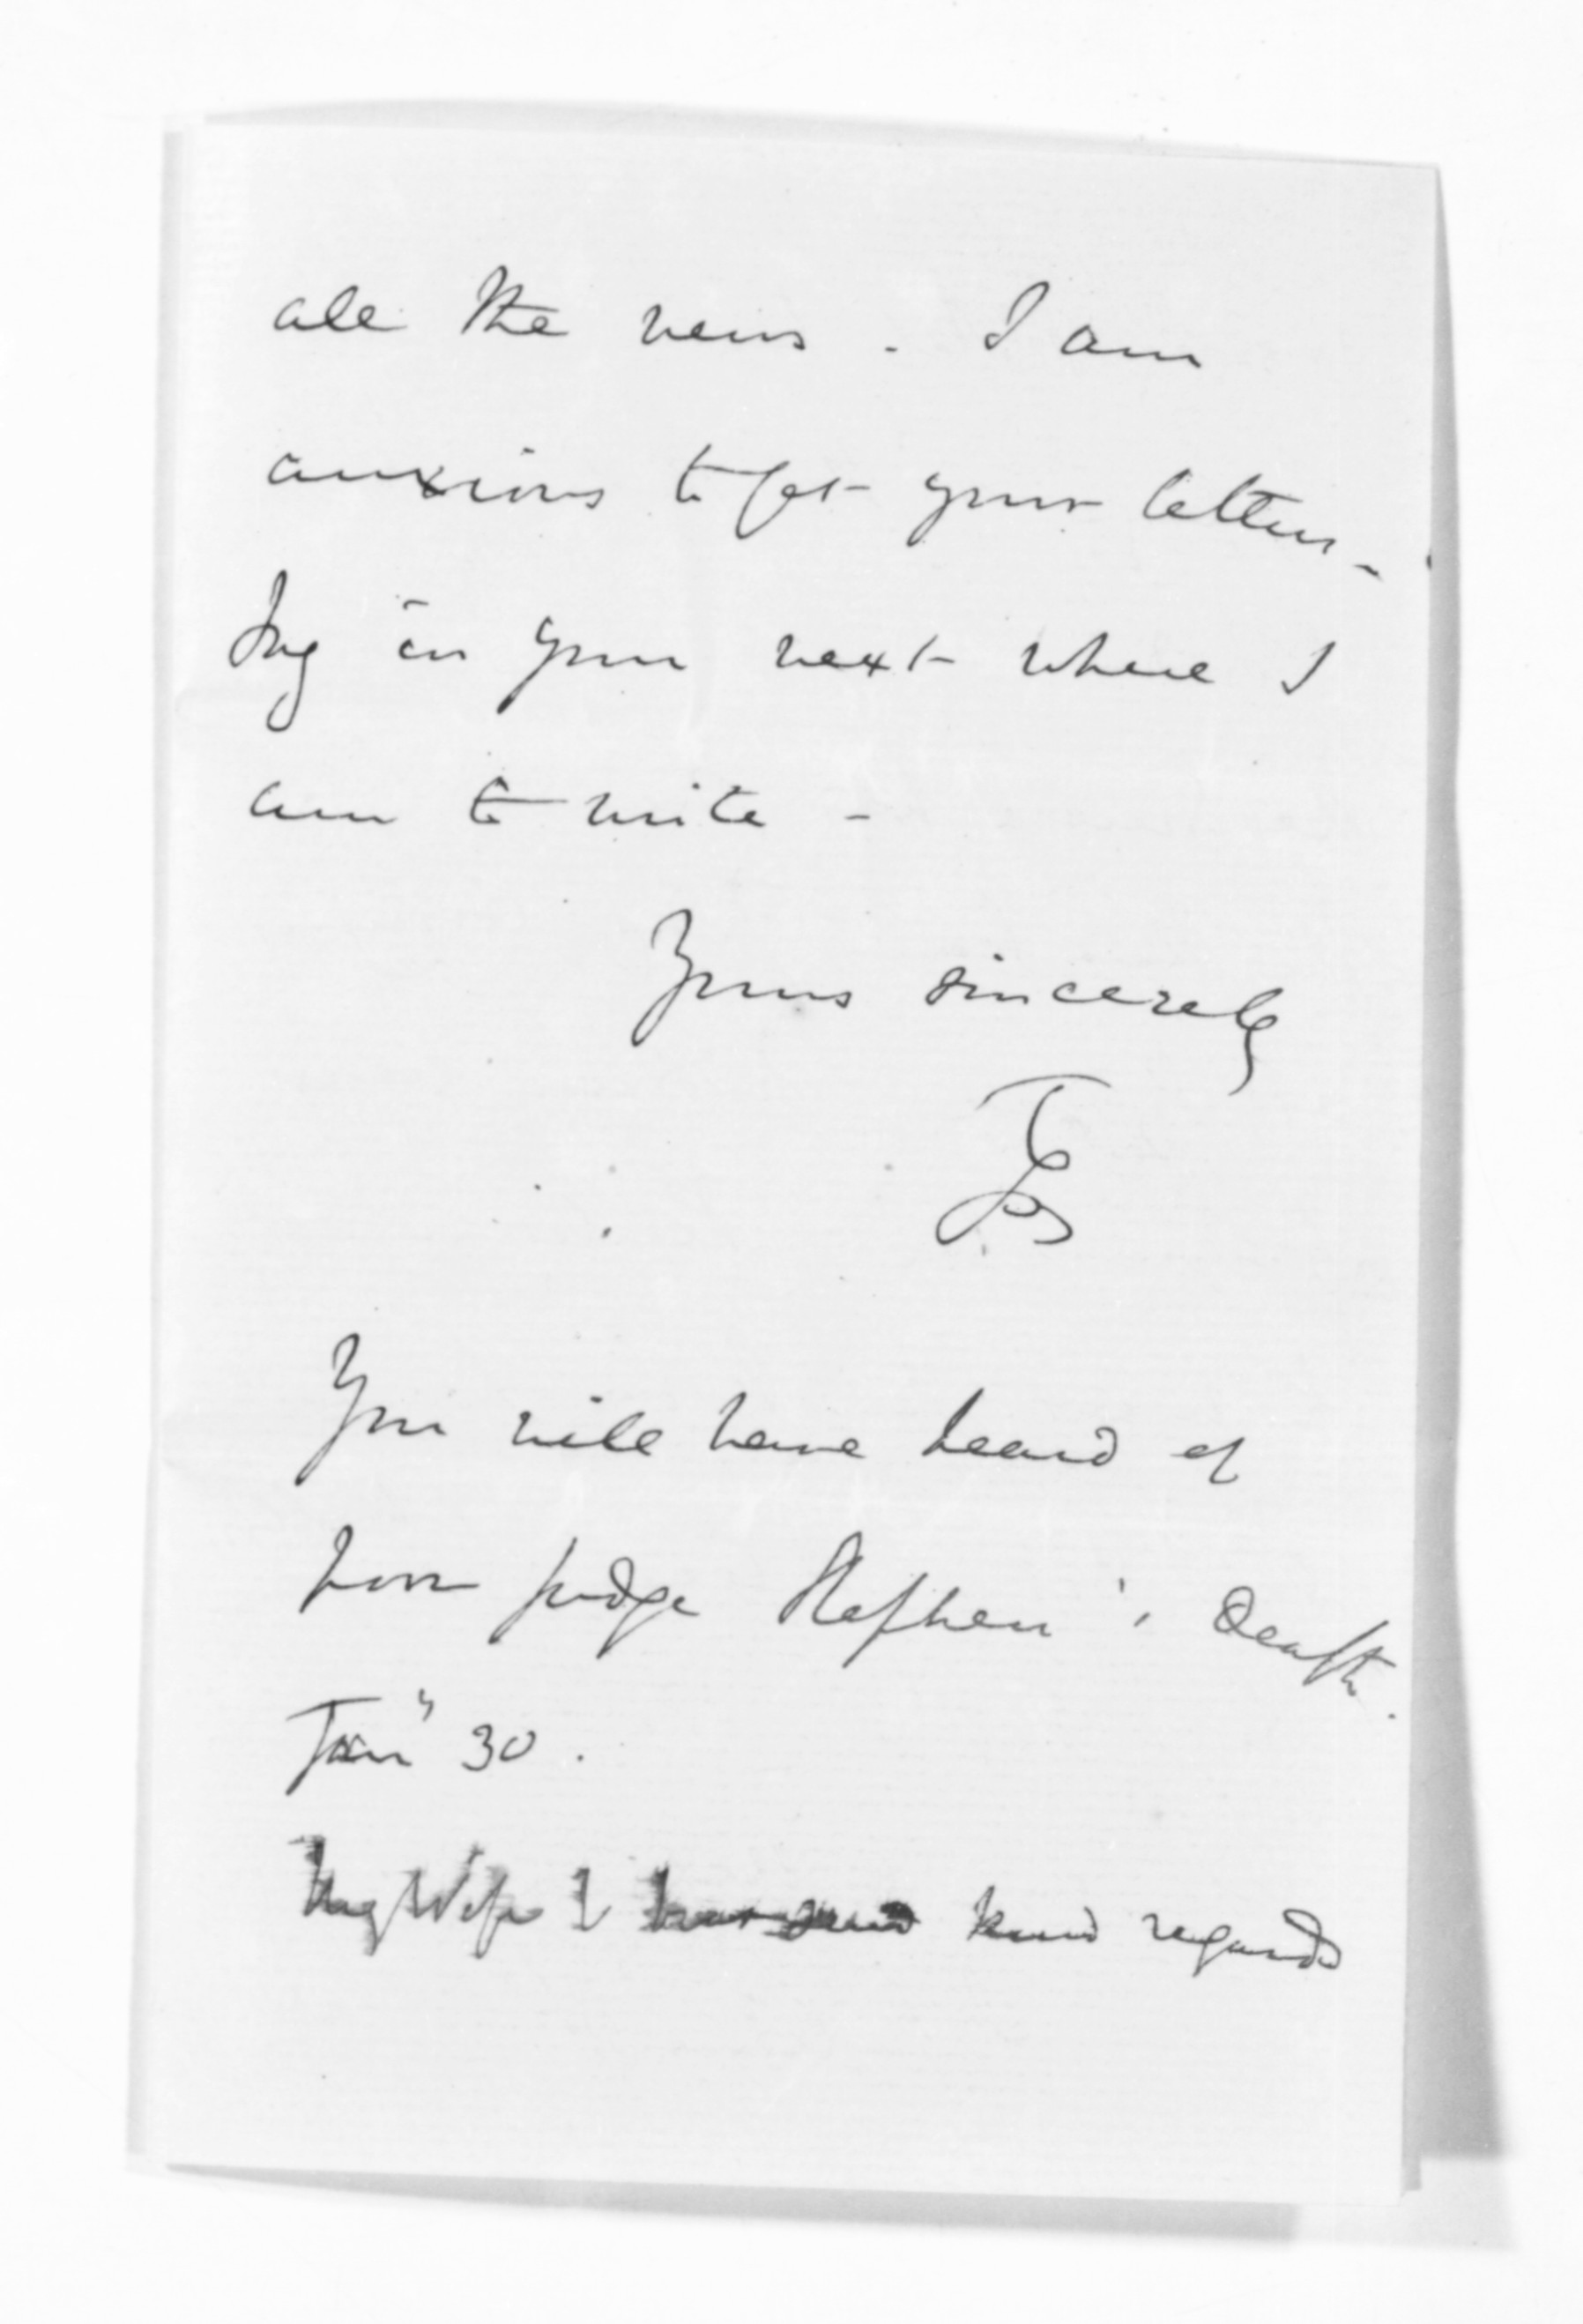 all the news. I am
anxious to get your letters.
Say in your next where I
am to write -
Yours sincerely
You will have heard of
poor Judge Stephen's death.
Jany 30.
My Wife & kind regards